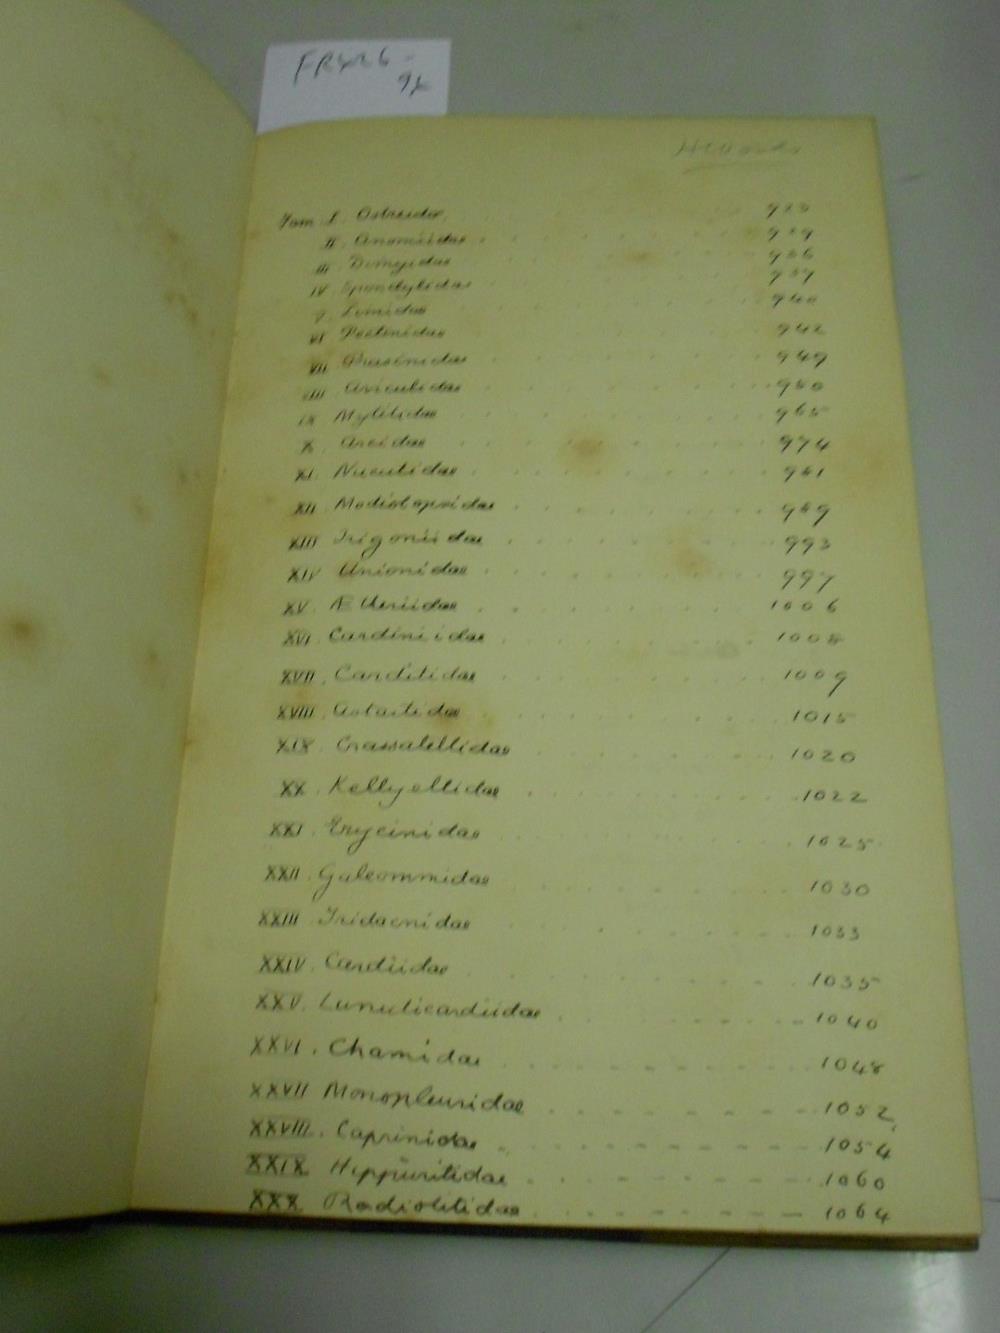 Fam. I Ostreidae 923
II. Anomiidae 929
III Dimyidae 936
IV Spondylidae 937
V Limidae 940
VI Pectinidae 942
VII 949
VIII Aviculidae 950
IX Mytilidae 965
X. Arcidae 974
XI. Nuculidae 981
XII Modiolopsidae 989
XIII Trigoniidae 993
XIV Unionidae 997
XV. Ætheriidae 1006
XVI. Cardiniidae 1008
XVII. Carditidae 1009
XVIII. Astartidae 1015
XIX. Crassatellidae 1020
XX. Kellyellidae 1022
XXI. Erycinidae 1025
XXII. Galeommidae 1030
XXIII Tridacnidae 1033
XXIV. Cardiidae 1035
XXV. Lunulicardiidae 1040
XXVI. Chamidae 1048
XXVII Monopleuridae 1052
XXVIII. Caprinidae 1054
XXIX Hippuritidae 1060
XXX Radiolitidae 1064